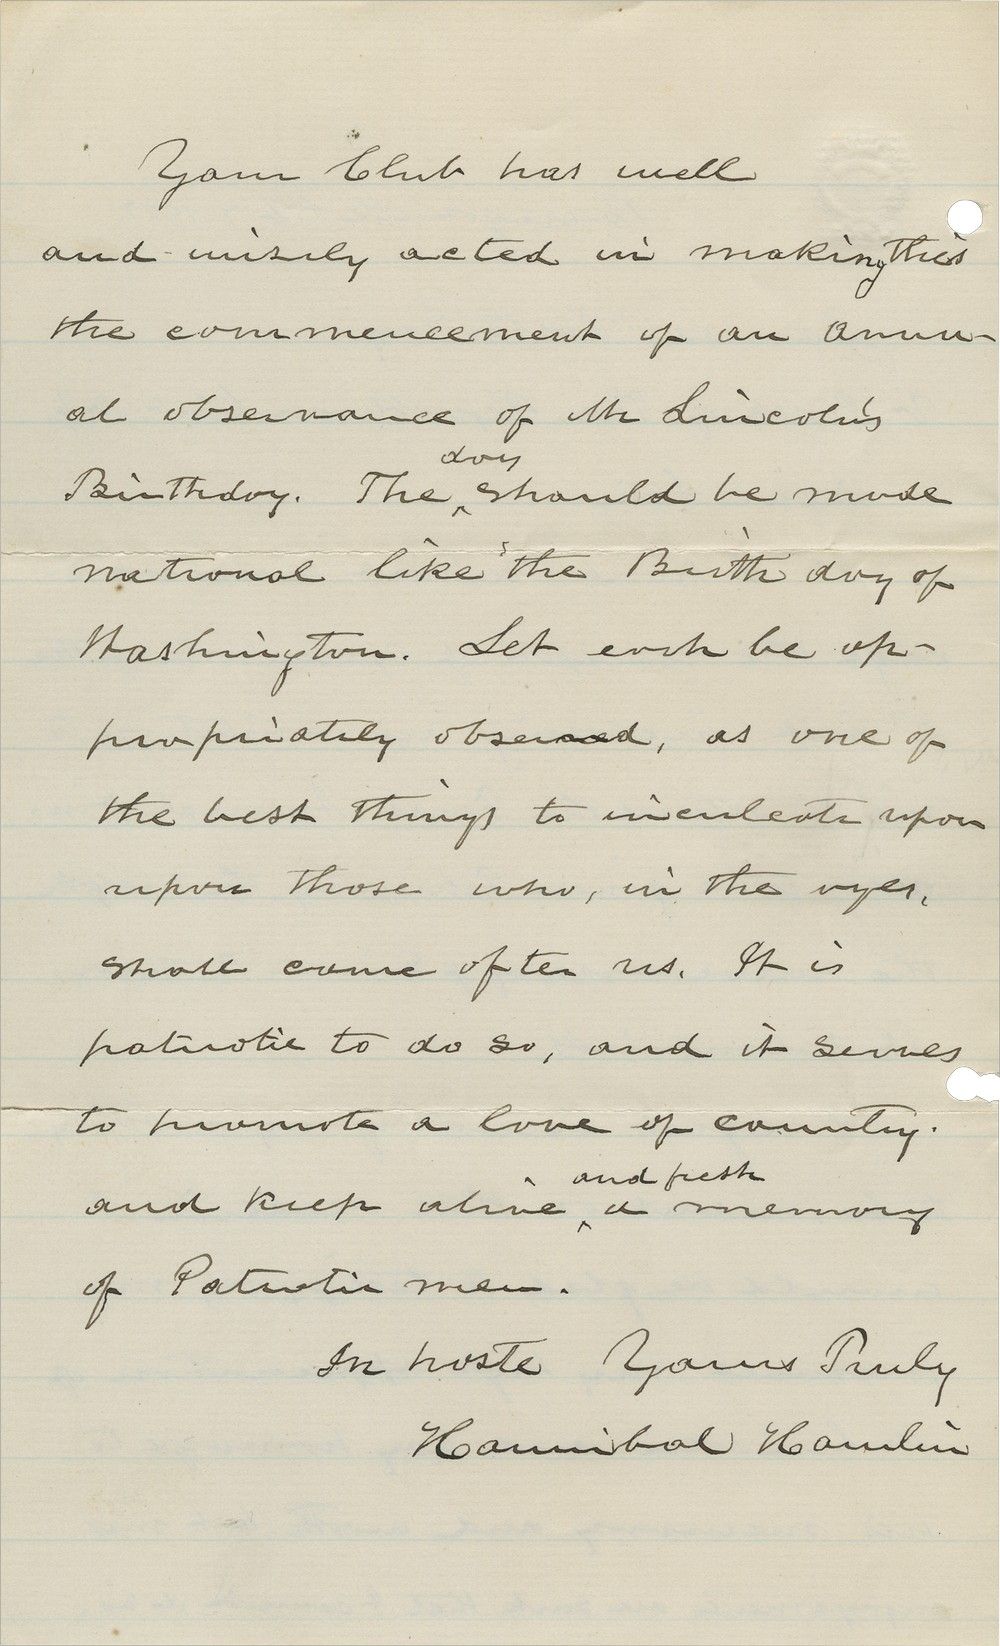 Your Club has well
and wisely acted in making this
the commencement of an Annu-
al observance of Mr Lincoln's
Birthday. The ^day should be made
national like the Birth day of
Washington. Let each be ap-
propriately observed, as one of
the best things to inculcate upon
upon those who, in the
shall come after us. It is
patriotic to do so, and it serves
to promote a love of country.
and keep alive ^and fresh a memory
of Patriotic men.
In haste Yours Truly
Hannibal Hamlin